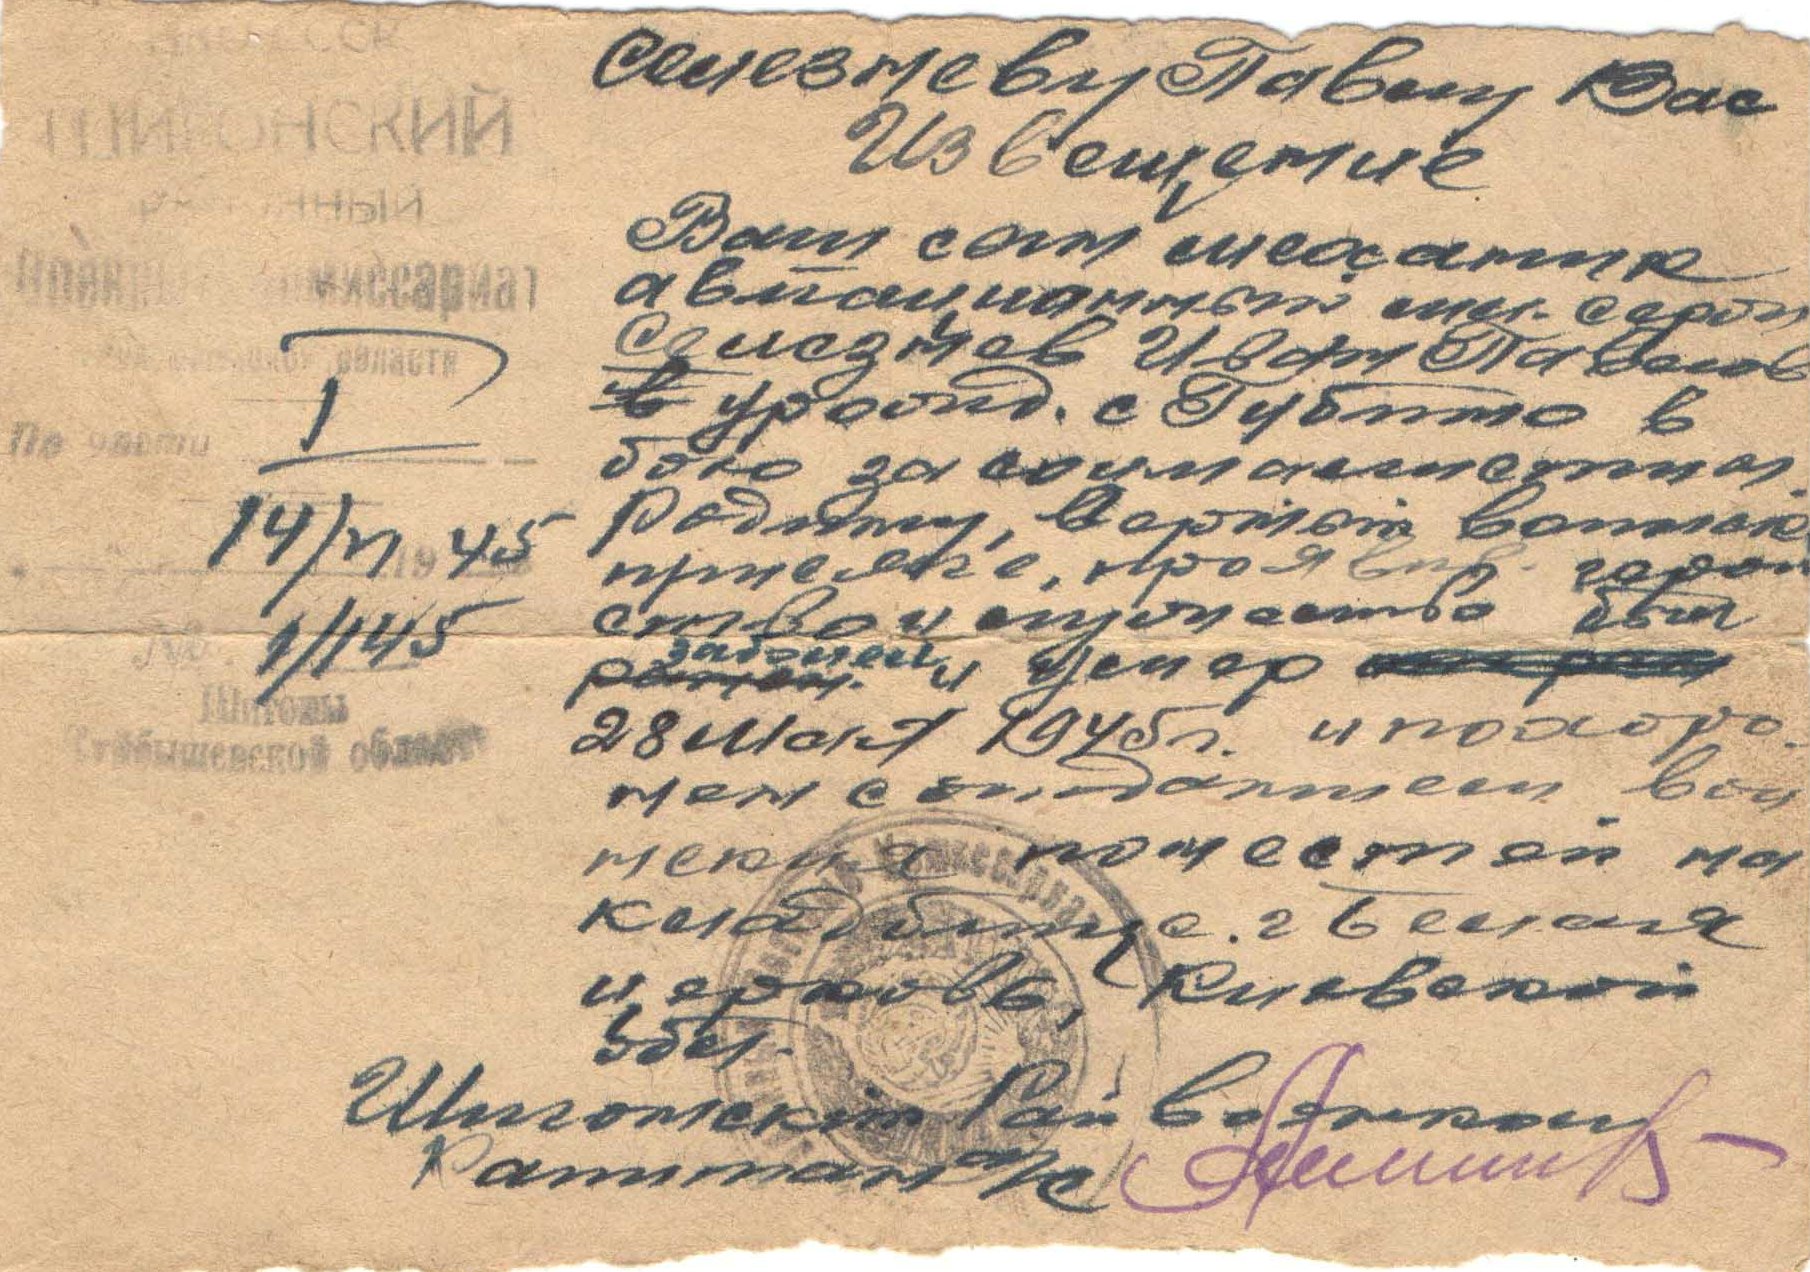 НКО СССР
ШИГОНСКИЙ
РАЙОННЫЙ
Военный Комиссариат
Куйбышевской области
По части I
14/VI 1945
№ 1/145
Шигоны
Куйбышевской области
Селезневу Павлу Вас
Извещение
Ваш сын механик
авиационный мл. серж
Селезнев Иван Павлов
в урожд. с Губино в
бою за социалистич.
Родину, верный воинск
присяге, проявив. герой
ство и мужество был
заболел
ранен. и умер
28 Мая 1945 г. и похоро-
нен с отданием вои
нских почестей на
кладбище. г Белая
церковь, Киевской
обл.
Шигонский Райвоенком
Капитан а/с